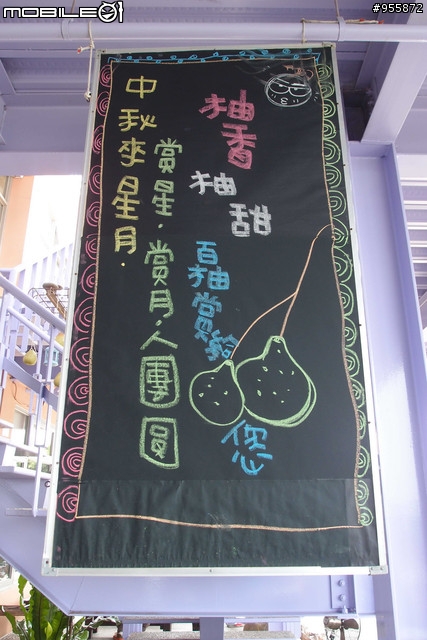 MOBILE01
#955872
柚香
柚
甜
百柚賞給
您
中秋來星月.
賞星.賞月.人團圓